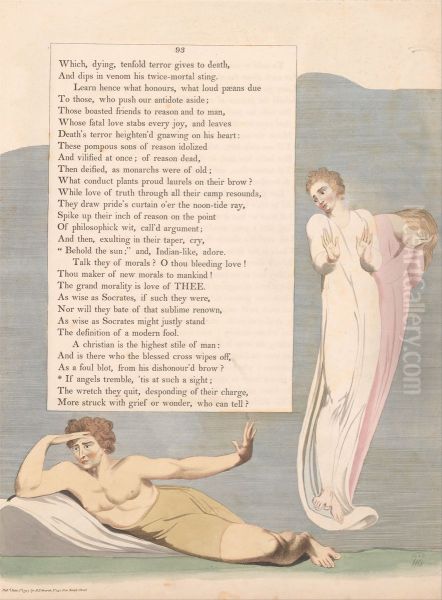 93
Which, dying, tenfold terror gives to death,
And dips in venom his twice-mortal sting.
Learn hence what honours, what loud pæans due
To those, who push our antidote aside;
Those boasted friends to reason and to man,
Whose fatal love stabs every joy, and leaves
Death's terror heighten'd gnawing on his heart:
These pompous sons of reason idolized
And vilified at once; of reason dead,
Then deified, as monarchs were of old;
What conduct plants proud laurels on their brow?
While love of truth through all their camp resounds,
They draw pride's curtain o'er the noon-tide ray,
Spike up their inch of reason on the point
Of philosophick wit, call'd argument;
And then, exulting in their taper, cry,
“ Behold the sun;” and, Indian-like, adore.
Talk they of morals? O thou bleeding love!
Thou maker of new morals to mankind!
The grand morality is love of THEE.
As wise as Socrates, if such they were,
Nor will they bate of that sublime renown,
As wise as Socrates might justly stand
The definition of a modern fool.
A christian is the highest stile of man:
And is there who the blessed cross wipes off,
As a foul blot, from his dishonour'd brow?
* If angels tremble, 'tis at such a sight;
The wretch they quit, desponding of their charge,
More struck with grief or wonder, who can tell?